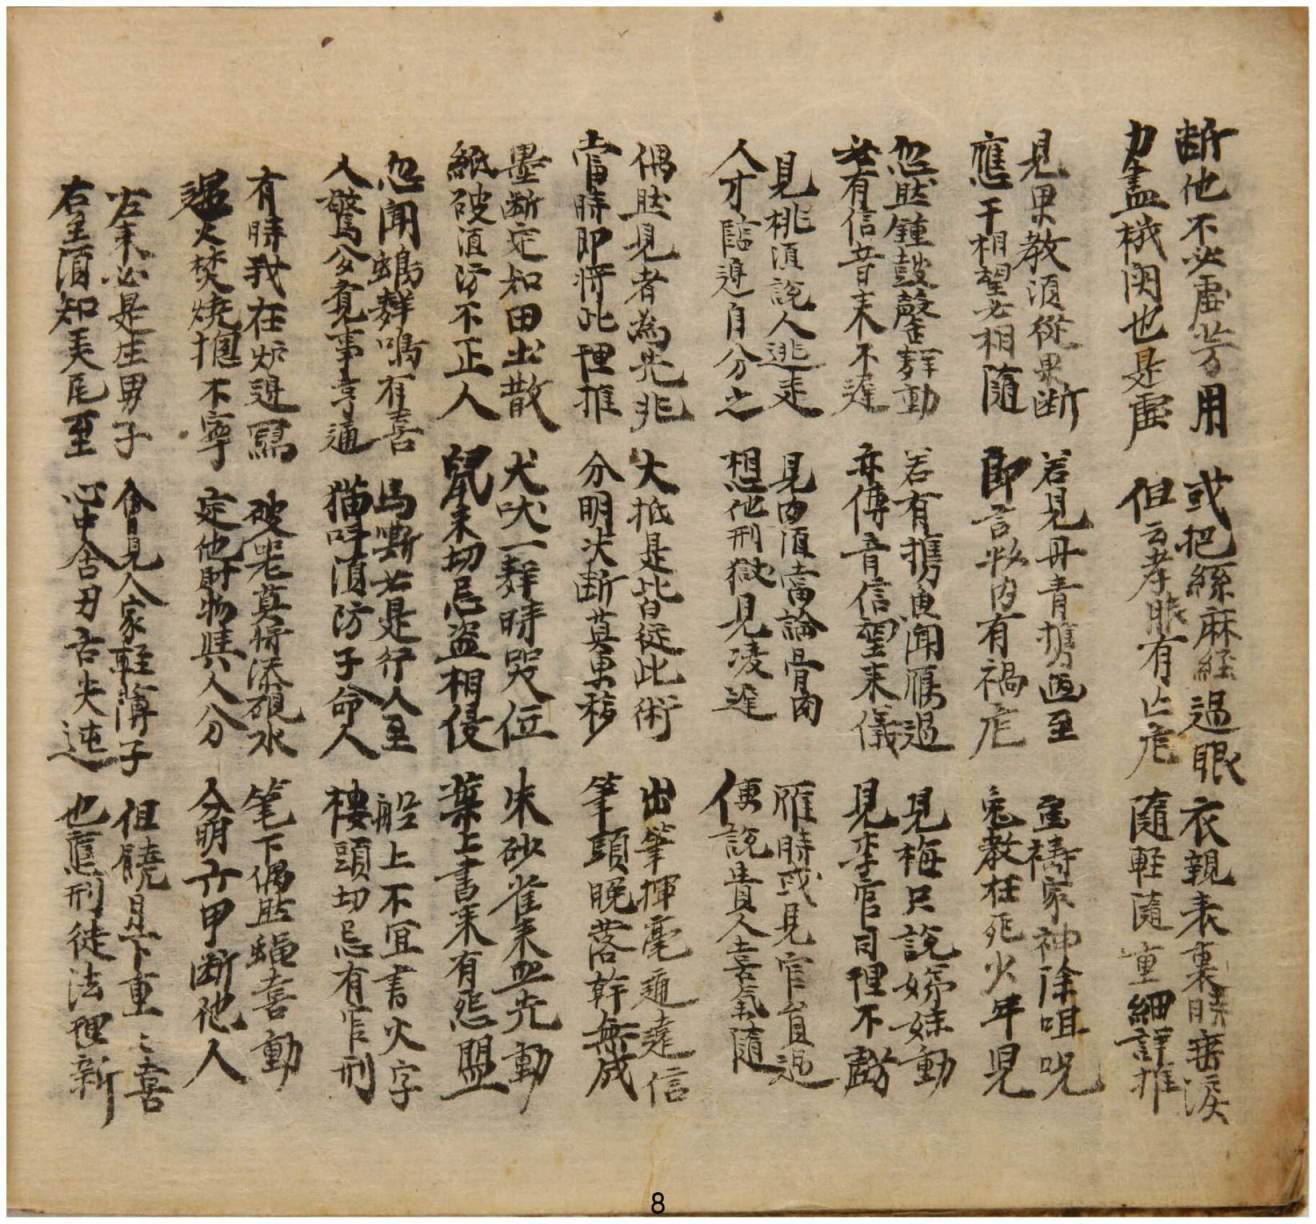 断他不必虚劳用 或把絲麻経過眼 衣親表裏時寄淚
力盡機関也是虚 但云孝眼有亡危 隨軽隨重細詳推
見果教須從果断 若見丹青携過至 䖏禱家神除咀呪
應干相望必相隨 即言牧内有禍危 兔教枉死少年児
忽然鐘鼓聲動 若有携魚聞雁過 見梅只說娣妹動
必有信音来不遅 亦傳音信望来儀 見李官司理不虧
見桃須說人逃走 見肉須當論骨肉 雁時或見官員過
人才臨過自分之 想他刑獄見凌遅 便說貴人喜氣隨
偶然見者為先兆 大抵是皆從此術 出筆揮毫通達信
當時即將此理推 分明决断莫更移 筆頭脱落幹無成
墨断定知田土散 犬吠一聲時哭位 朱砂雀来血光動
紙破須防不正人 鼠来切忌盗相侵 葉上書来有怨盟
忽聞鵲聲鳴有喜 馬嘶必是行人至 船上不宜書火字
人驚分覓事亨通 猫呌須防子命人 楼頭切忌有官刑
有時我在炉邉寫 破笔莫將添硯水 笔下偶然蝇喜動
逞火焚燒搃不寧 定他財物與人分 分明六甲断他人
左来必是生男子 會見人家軽薄子 但饒月下重々喜
右至須知美尾至 心中舍丑古失迍 也應刑徒法理新
8